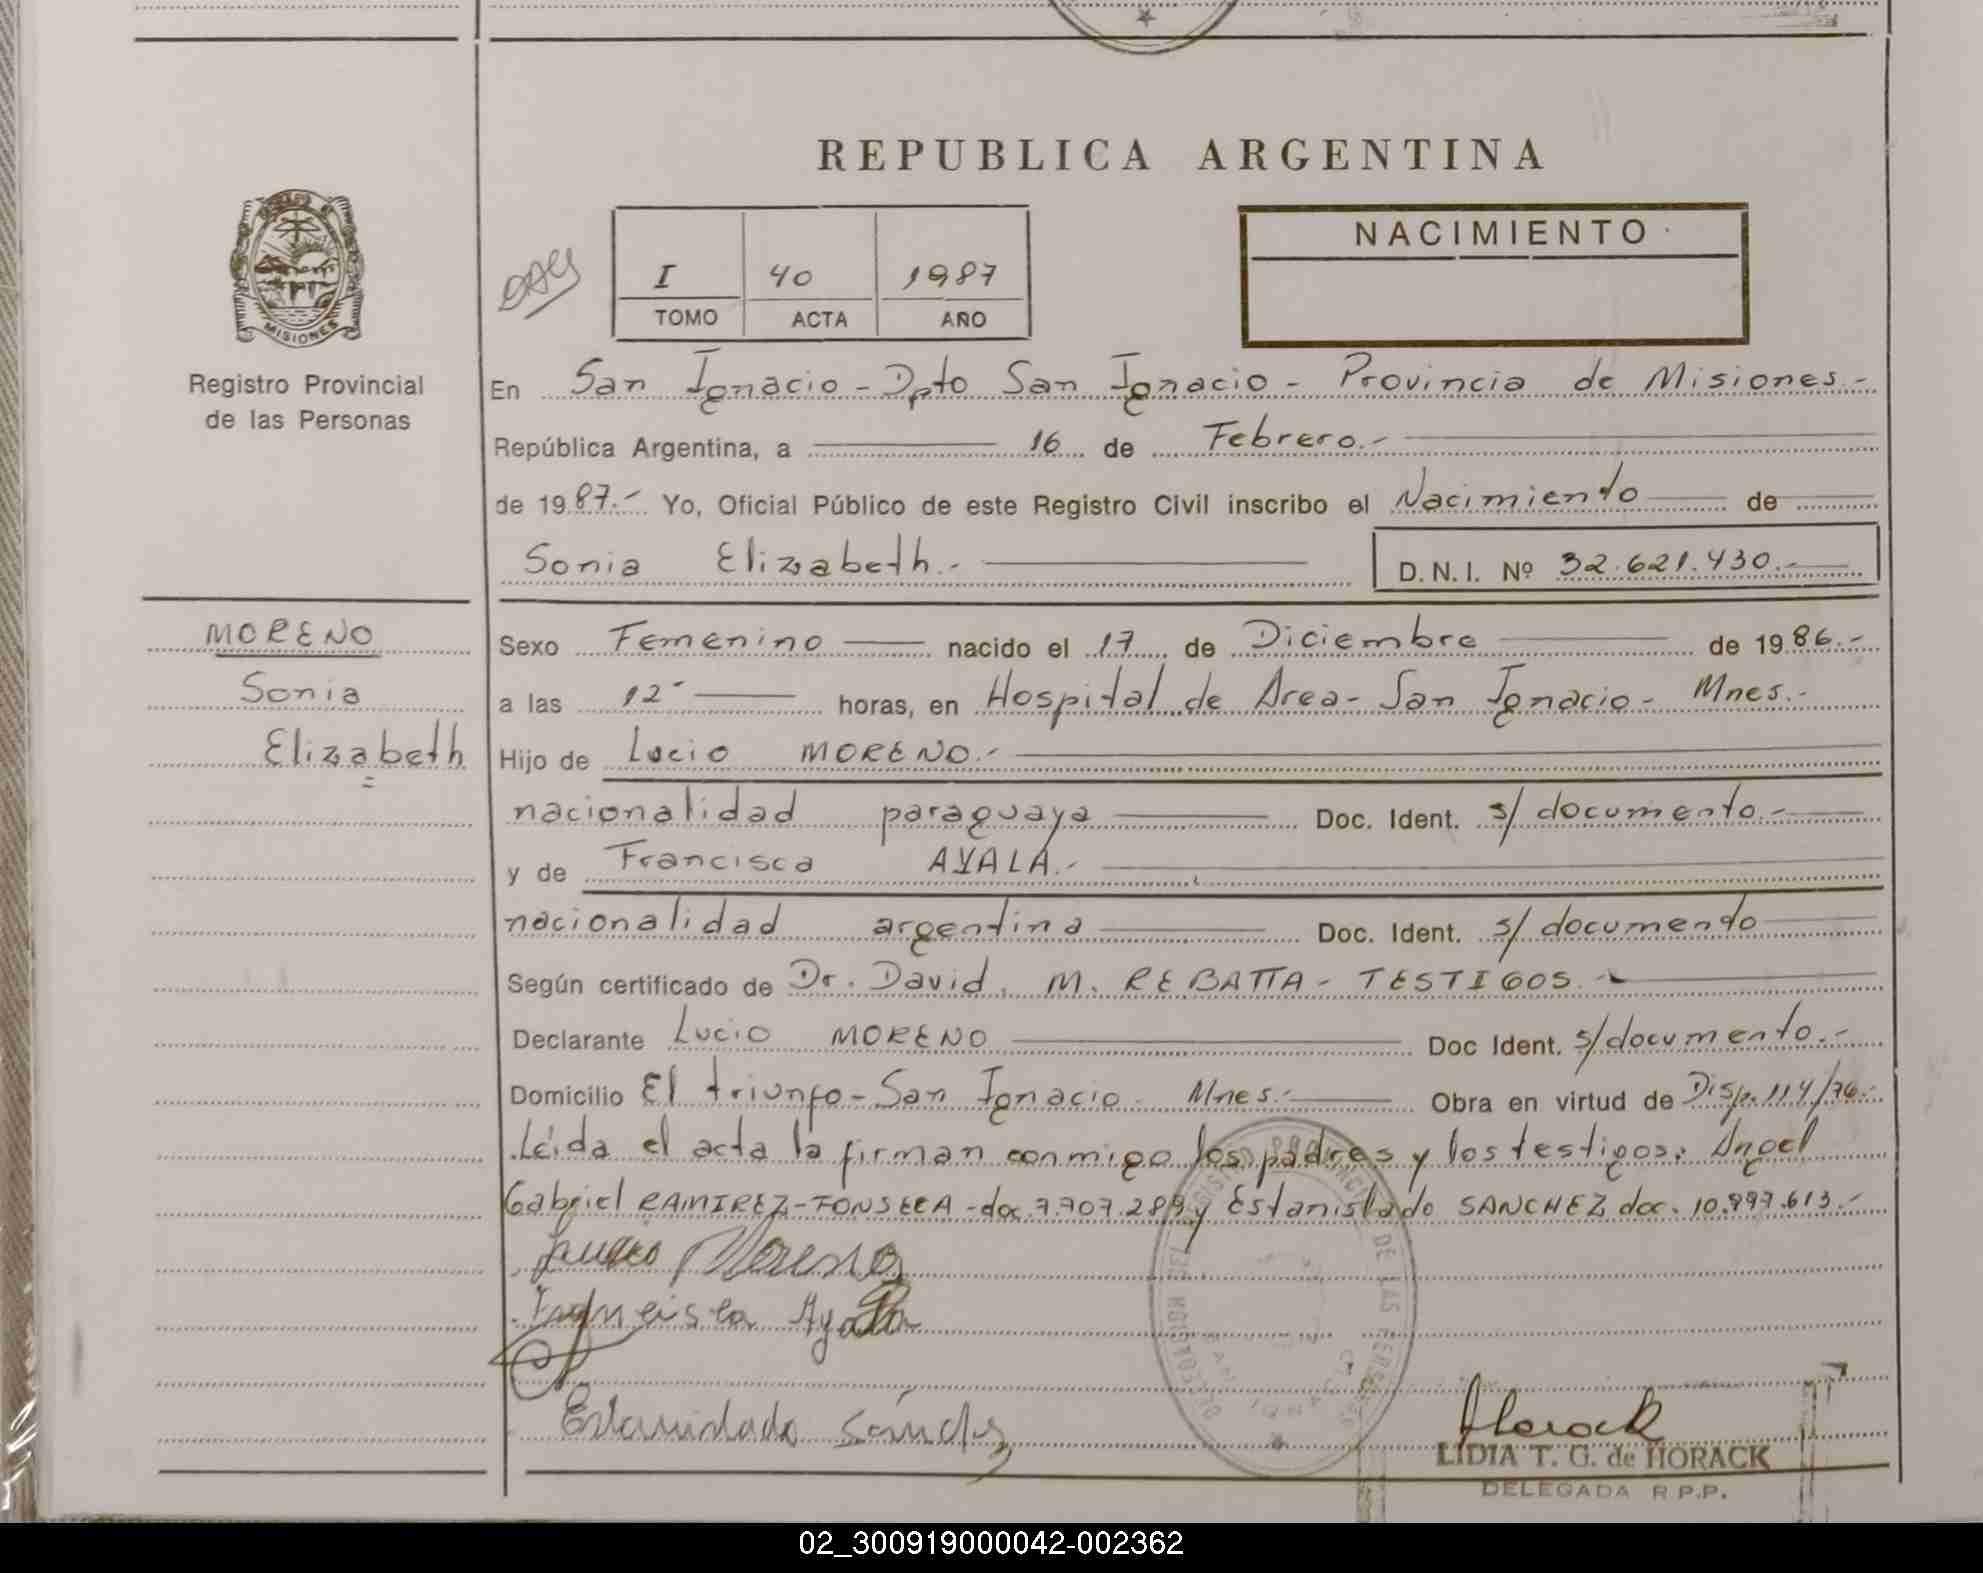 REPUBLICA ARGENTINA
NACIMIENTO
I 40 1987
TOMO ACTA AÑO
MISIONES
Registro Provincial
de las Personas
En San Ignacio - Dpto San Ignacio - Provincia de Misiones.-
República Argentina, a 16 de Febrero.-
de 1987.- Yo, Oficial Público de este Registro Civil inscribo el Nacimiento de
Sonia Elizabeth.- D.N.I. Nº 32.621.430.-
MORENO
Sonia
Elizabeth
Sexo Femenino nacido el 17 de Diciembre de 1986.-
a las 12 horas, en Hospital de Area - San Ignacio - Mnes.-
Hijo de Lucio MORENO.-
nacionalidad paraguaya Doc. Ident. s/ documento.-
y de Francisca AYALA.-
nacionalidad argentina Doc. Ident. s/ documento
Según certificado de Dr. David M. REBATTA - TESTIGOS.-
Declarante Lucio MORENO Doc Ident. s/documento.-
Domicilio El triunfo - San Ignacio Mnes.- Obra en virtud de Disp. 114/76.-
Leída el acta la firman conmigo los padres y los testigos: Angel
Gabriel RAMIREZ - FONSECA - doc. 7.707.289 y Estanislado SANCHEZ doc. 10.997.613.-
Lucio Moreno
Francisca Ayala
Estanislado Sánchez
Horack
LIDIA T. G. de HORACK
DELEGADA R.P.P.
02_300919000042-002362